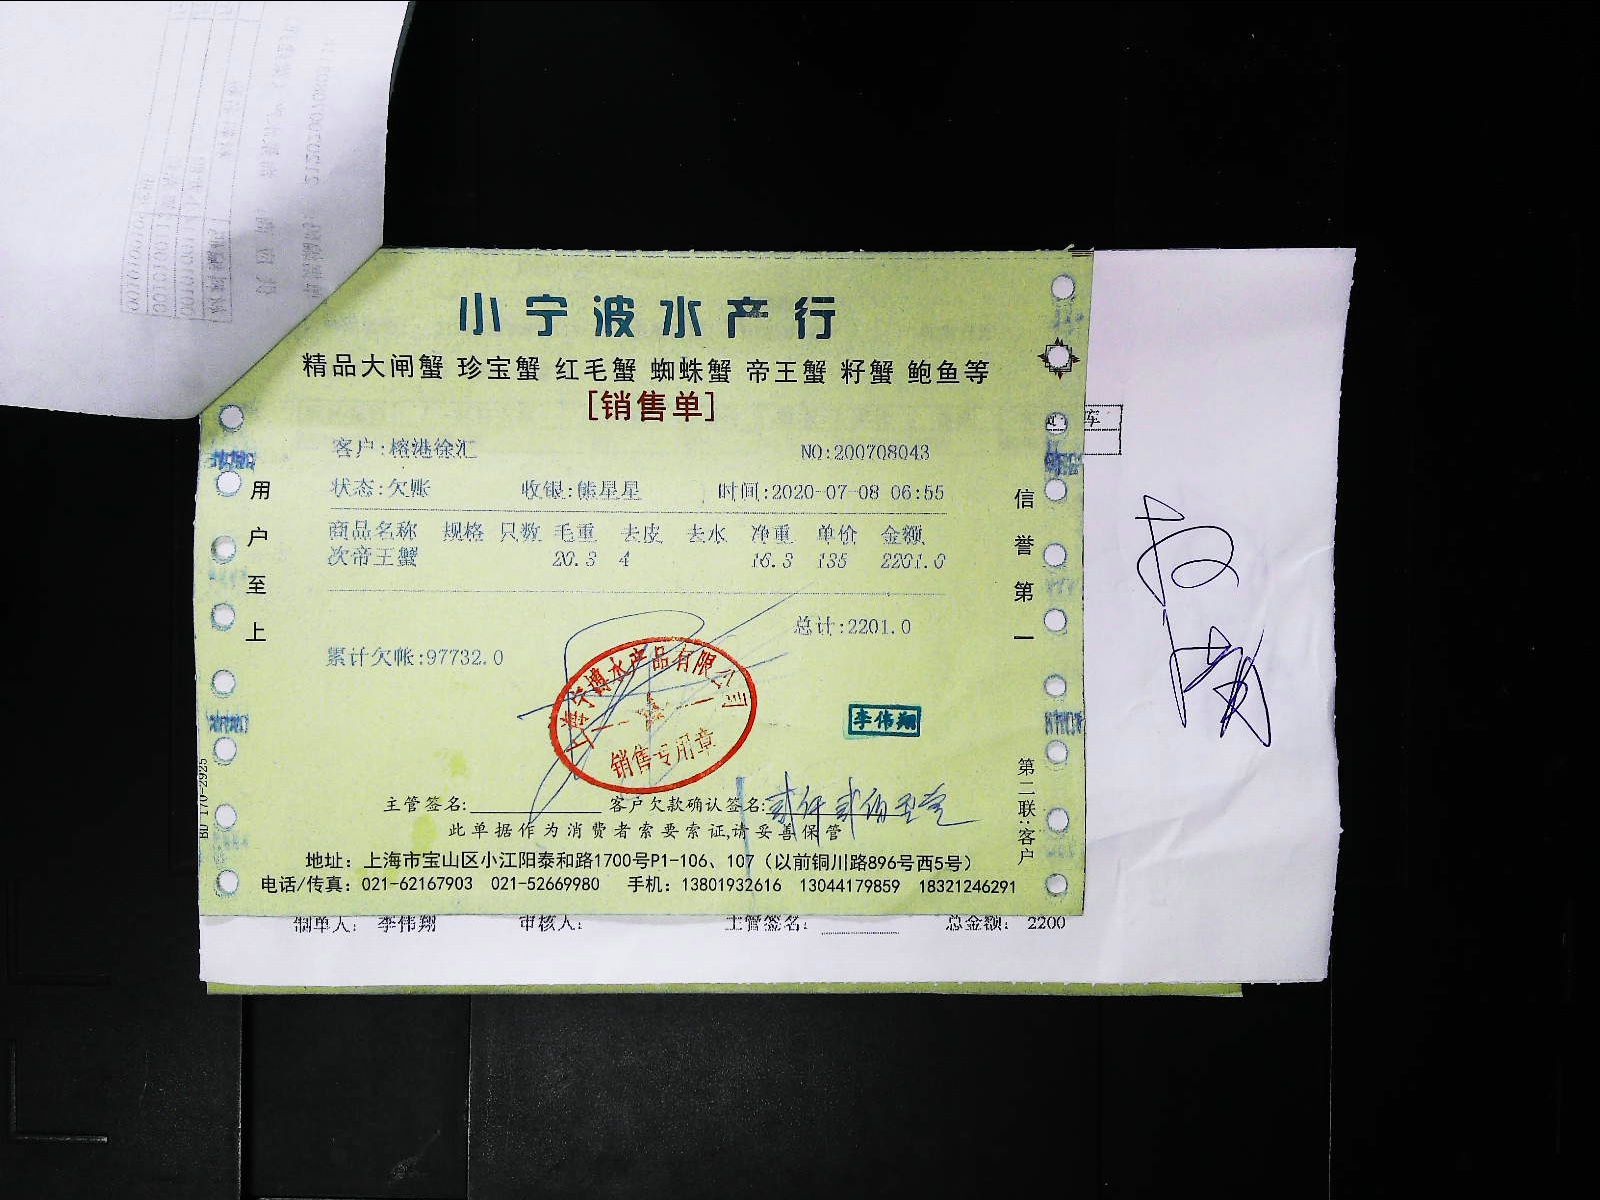 小宁波水产行
精品大闸蟹 珍宝蟹 红毛蟹 蜘蛛蟹 帝王蟹 籽蟹 鲍鱼等
[销售单]
客户:榕港徐汇 NO:200708043
状态:欠账 收银:熊星星 时间:2020-07-08 06:55
商品名称 规格 只数 毛重 去皮 去水 净重 单价 金额
次帝王蟹 20.3 4 16.3 135 2201.0
总计:2201.0
累计欠帐:97732.0
用户至上
信誉第一
上海宁博水产品有限公司
销售专用章
李伟翔
主管签名: 客户欠款确认签名:
贰仟贰佰
此单据作为消费者索要索证,请妥善保管
地址：上海市宝山区小江阳泰和路1700号P1-106、107（以前铜川路896号西5号）
电话/传真：021-62167903 021-52669980 手机：13801932616 13044179859 18321246291
第二联:客户
制单人: 李伟翔 审核人: 主管签名: 总金额: 2200
车